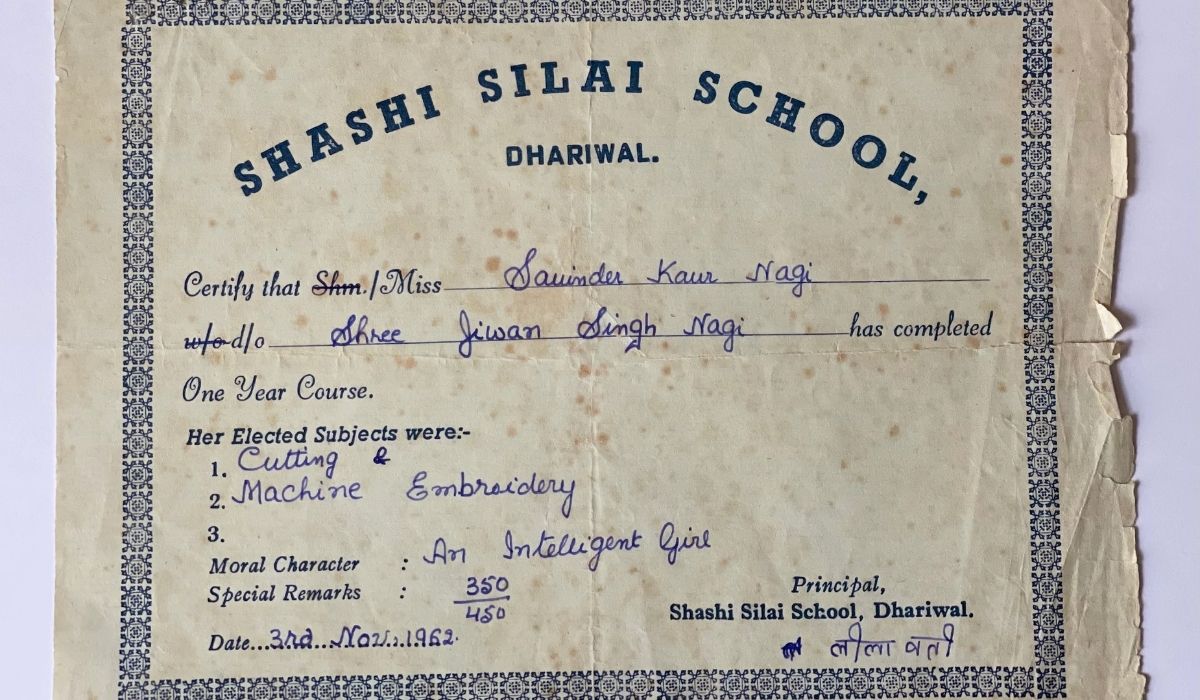 SHASHI SILAI SCHOOL,
DHARIWAL.
Certify that Shm./Miss Sauinder Kaur Nagi
w/o d/o Shree Jiwan Singh Nagi has completed
One Year Course.
Her Elected Subjects were:-
1. Cutting &
2. Machine Embroidery
3.
Moral Character : An Intelligent Girl
Special Remarks : 350/450
Principal,
Shashi Silai School, Dhariwal.
Date...3rd...Nov...1962.
लीला वती